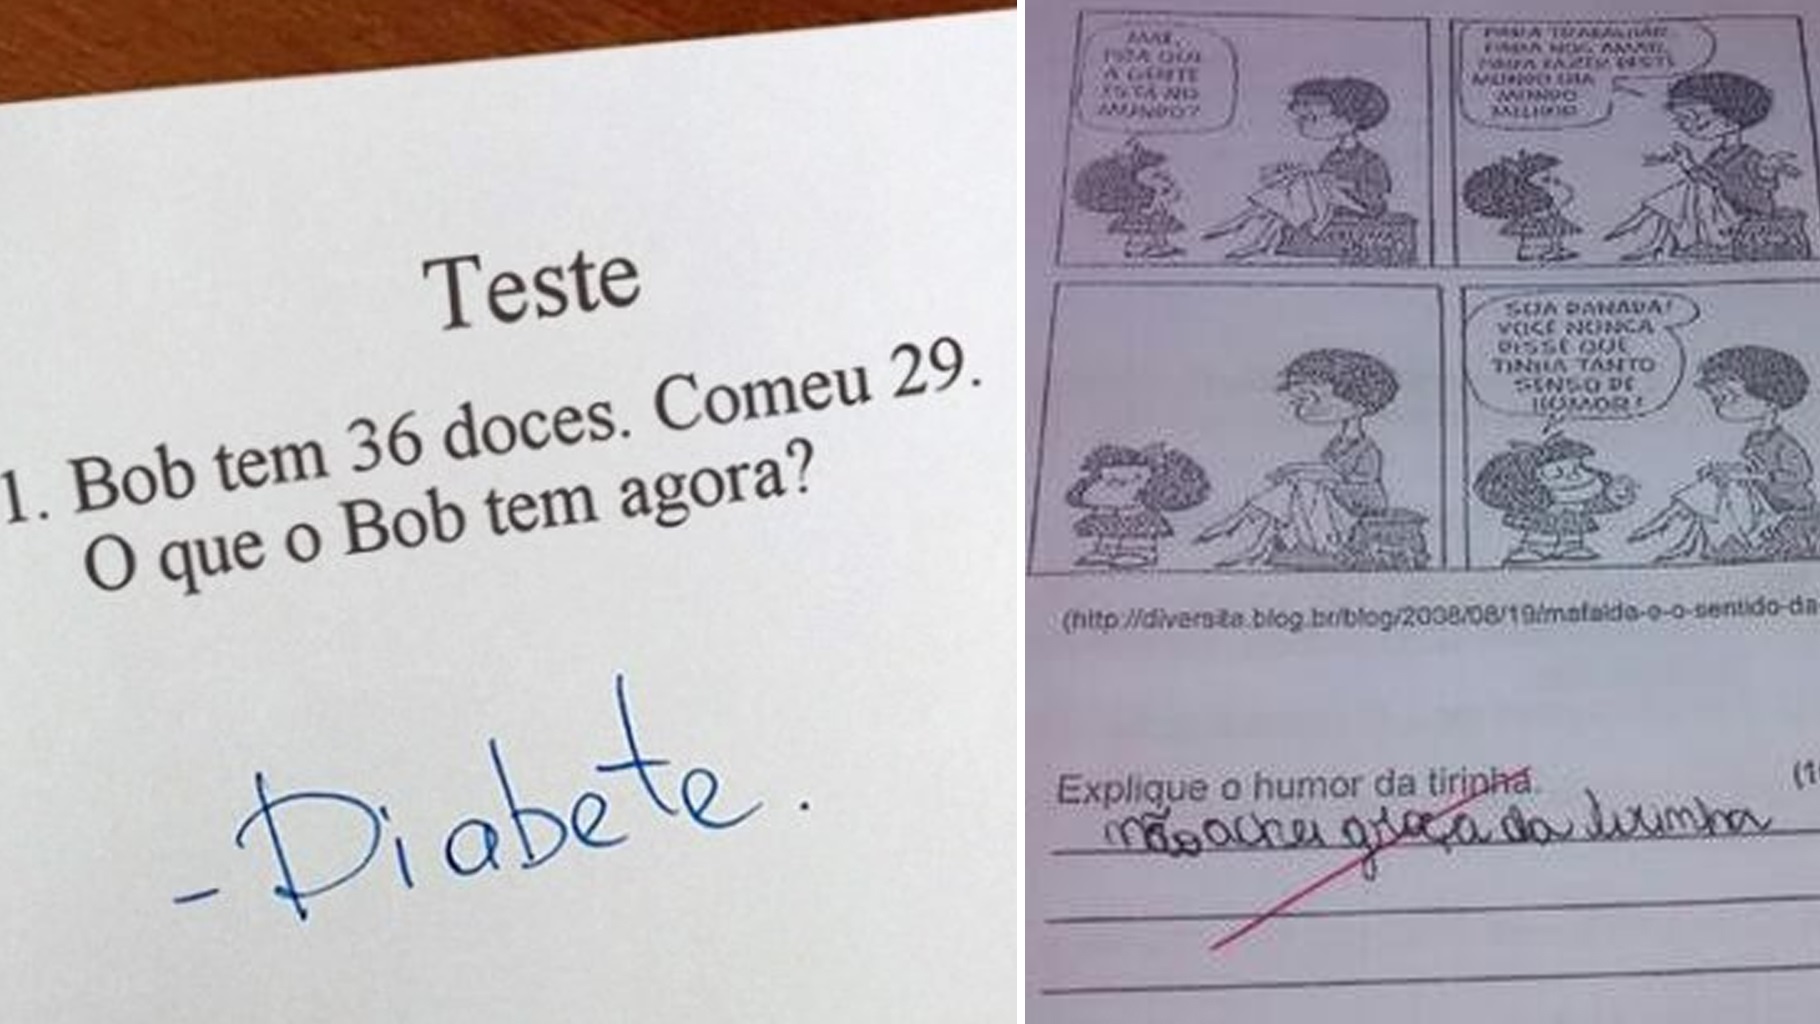 Teste
1. Bob tem 36 doces. Comeu 29.
O que o Bob tem agora?
- Diabete.
MÃE,
PRA QUE
A GENTE
ESTÁ NO
MUNDO?
PARA TRABALHAR,
PARA NOS AMAR,
PARA FAZER DESTE
MUNDO UM
MUNDO
MELHOR
SUA DANADA!
VOCÊ NUNCA
DISSE QUE
TINHA TANTO
SENSO DE
HUMOR!
(http://diversita.blog.br/blog/2008/08/19/mafalda-e-o-sentido-da-
Explique o humor da tirinha. (1
não achei graça da tirinha